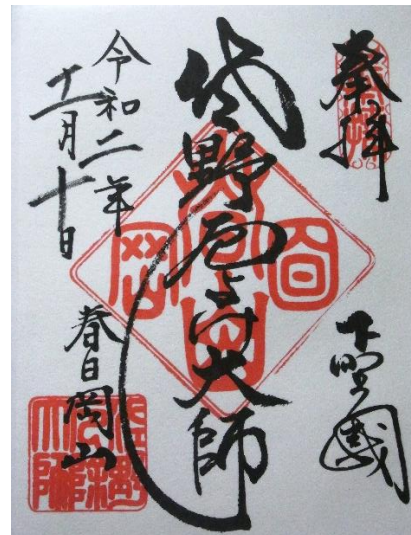 奉拝
下野國
佐野厄よけ大師
令和二年
十一月十日
春日岡山